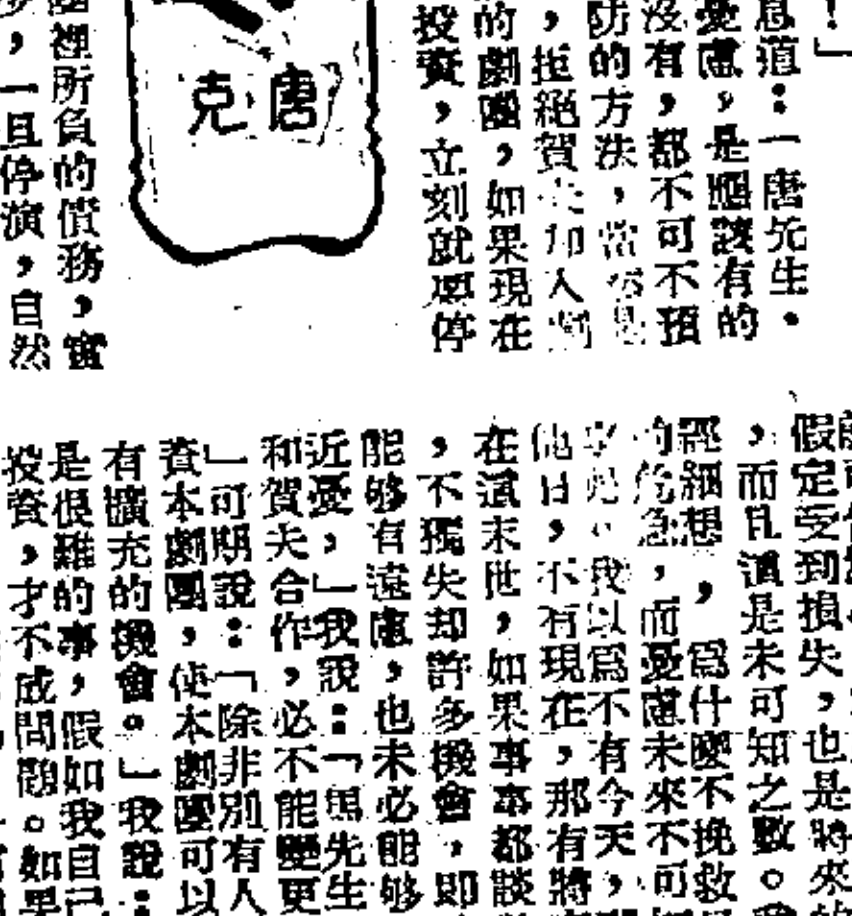 ！」
息道：「唐先生。
憂慮，是應該有的
沒有，都不可不預
防的方法，當然是
，拒絕賀夫加入劇
的劇團，如果現在
投資，立刻就要停
唐克
團裡所負的債務，實
，一旦停演，自然
假定受到損失，也是將來
，而且還是未可知之數。
經細想，爲什麼不挽救
的危急，而憂慮未來不可
我以爲不有今天，
他日，不有現在，那有將
在這末世，如果事事都談
，不獨失却許多機會，即
能够有遠慮，也未必能够
近憂，」我說：「馬先生
和賀夫合作，必不能變更
」可期說：「除非別有人
資本劇團，使本劇團可以
有擴充的機會。」我說：
是很難的事，假如我自己
投資，才不成問題。如果